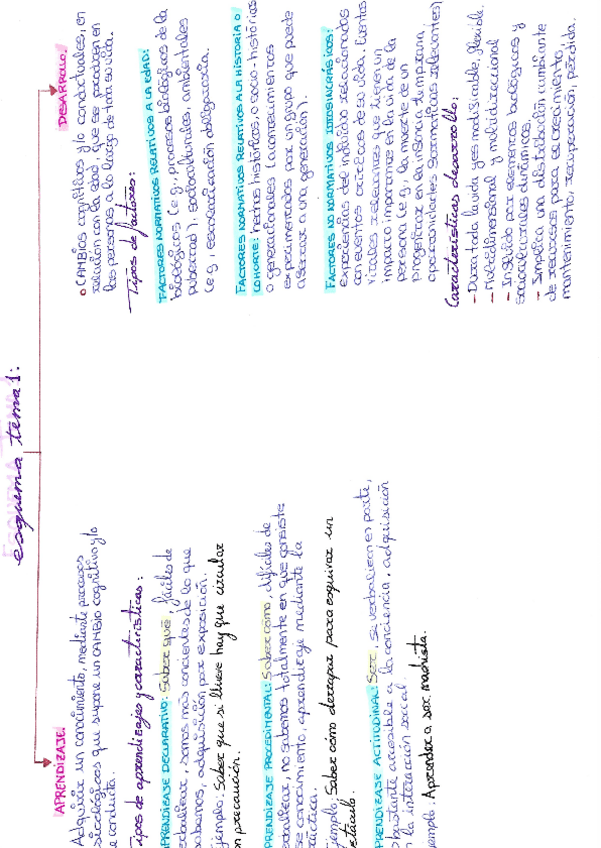 esquema tema 1:
APRENDIZAJE
Adquirir un conocimiento, mediante procesos
sicológicos que supone un CAMBIO cognitivo y/o
e conducta.
Tipos de aprendizajes y características:
PRENDIZAJE DECLARATIVO: Saber qué, fáciles de
erbalizar, somos más concientes de lo que
abemos, adquisición por exposición.
jemplo: Saber que si llueve hay que circular
on precaución.
PRENDIZAJE PROCEDIMENTAL: Saber cómo, difíciles de
erbalizar, no sabemos totalmente en que consiste
se conocimiento, aprendizaje mediante la
ráctica.
jemplo: Saber cómo derrapar para esquivar un
stáculo.
PRENDIZAJE ACTITUDINAL: Ser, se verbaliza en parte,
bastante accesible a la conciencia, adquisición
n la interacción social.
emplo: Aprender a ser machista.
DESARROLLO.
CAMBIOS cognitivos y/o conductuales, en
relación con la edad, que se producen en
las personas a lo largo de toda su vida.
Tipos de factores:
FACTORES NORMATIVOS RELATIVOS A LA EDAD:
biológicos (e.g., procesos biológicos de la
pubertad), socioculturales, ambientales
(e.g., escolarización obligatoria).
FACTORES NORMATIVOS RELATIVOS A LA HISTORIA O
COHORTE: hechos históricos, o socio-históricos
o generacionales (acontecimientos
experimentados por un grupo que puede
afectar a una generación).
FACTORES NO NORMATIVOS IDIOSINCRÁSICOS:
experiencias del individuo relacionados
con eventos críticos de su vida. Eventos
vitales relevantes que tienen un
impacto importante en la vida de la
persona (e.g., la muerte de un
progenitor en la infancia temprana,
oportunidades económicas relevantes)
Características desarrollo:
- Dura toda la vida y es modificable, flexible.
- Multidimensional y multidireccional
- Influido por elementos biológicos y
socioculturales dinámicos.
- Implica una distribución cambiante
de recursos para el crecimiento,
mantenimiento, recuperación, pérdida.